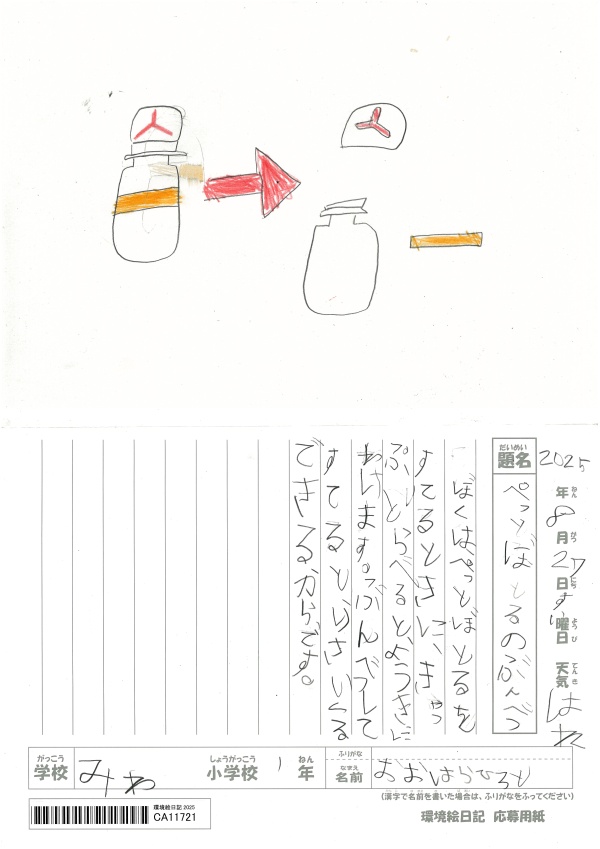 2025年8月27日すい曜日 天気はれ
ねん がつ にち ようび てんき
だいめい
題名
ぺっとぼとるのぶんべつ
ぼくはぺっとぼとるを
すてるときに、きゃっ
ぷとらべるとようきに
わけます。ぶんべつして
すてるとりさいくる
できるからです。
がっこう
学校
みわ
しょうがっこう
小学校
1
ねん
年
ふりがな
なまえ
名前
おおはらひろと
(漢字で名前を書いた場合は、ふりがなをふってください)
環境絵日記 2025
CA11721
環境絵日記 応募用紙